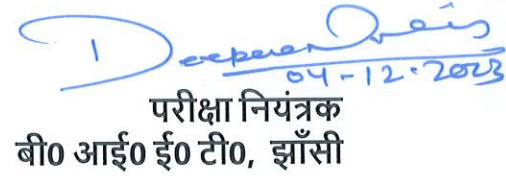 04-12-2023
परीक्षा नियंत्रक
बी0 आई0 ई0 टी0, झाँसी